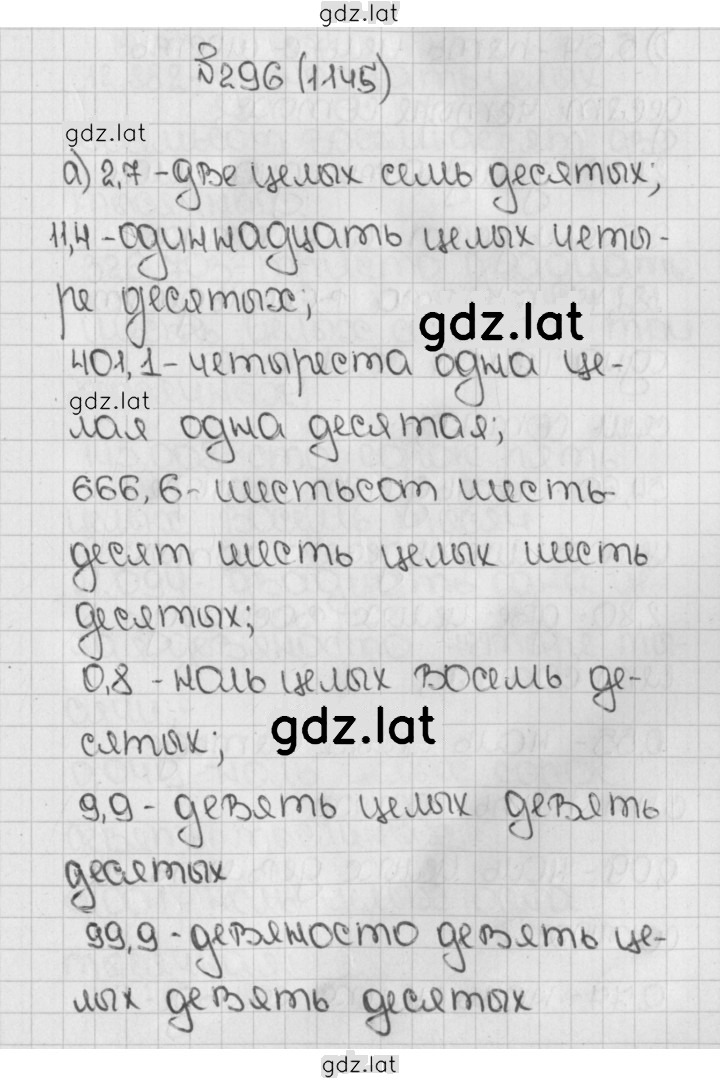 gdz.lat
№296 (1145)
gdz.lat
а) 2,7 - две целых семь десятых;
11,4 - одиннадцать целых четы-
ре десятых;
gdz.lat
401,1 - четыреста одна це-
gdz.lat
лая одна десятая;
666,6 - шестьсот шесть-
десят шесть целых шесть
десятых;
0,8 - ноль целых восемь де-
gdz.lat
сятых;
9,9 - девять целых девять
десятых
99,9 - девяносто девять це-
лых девять десятых
gdz.lat